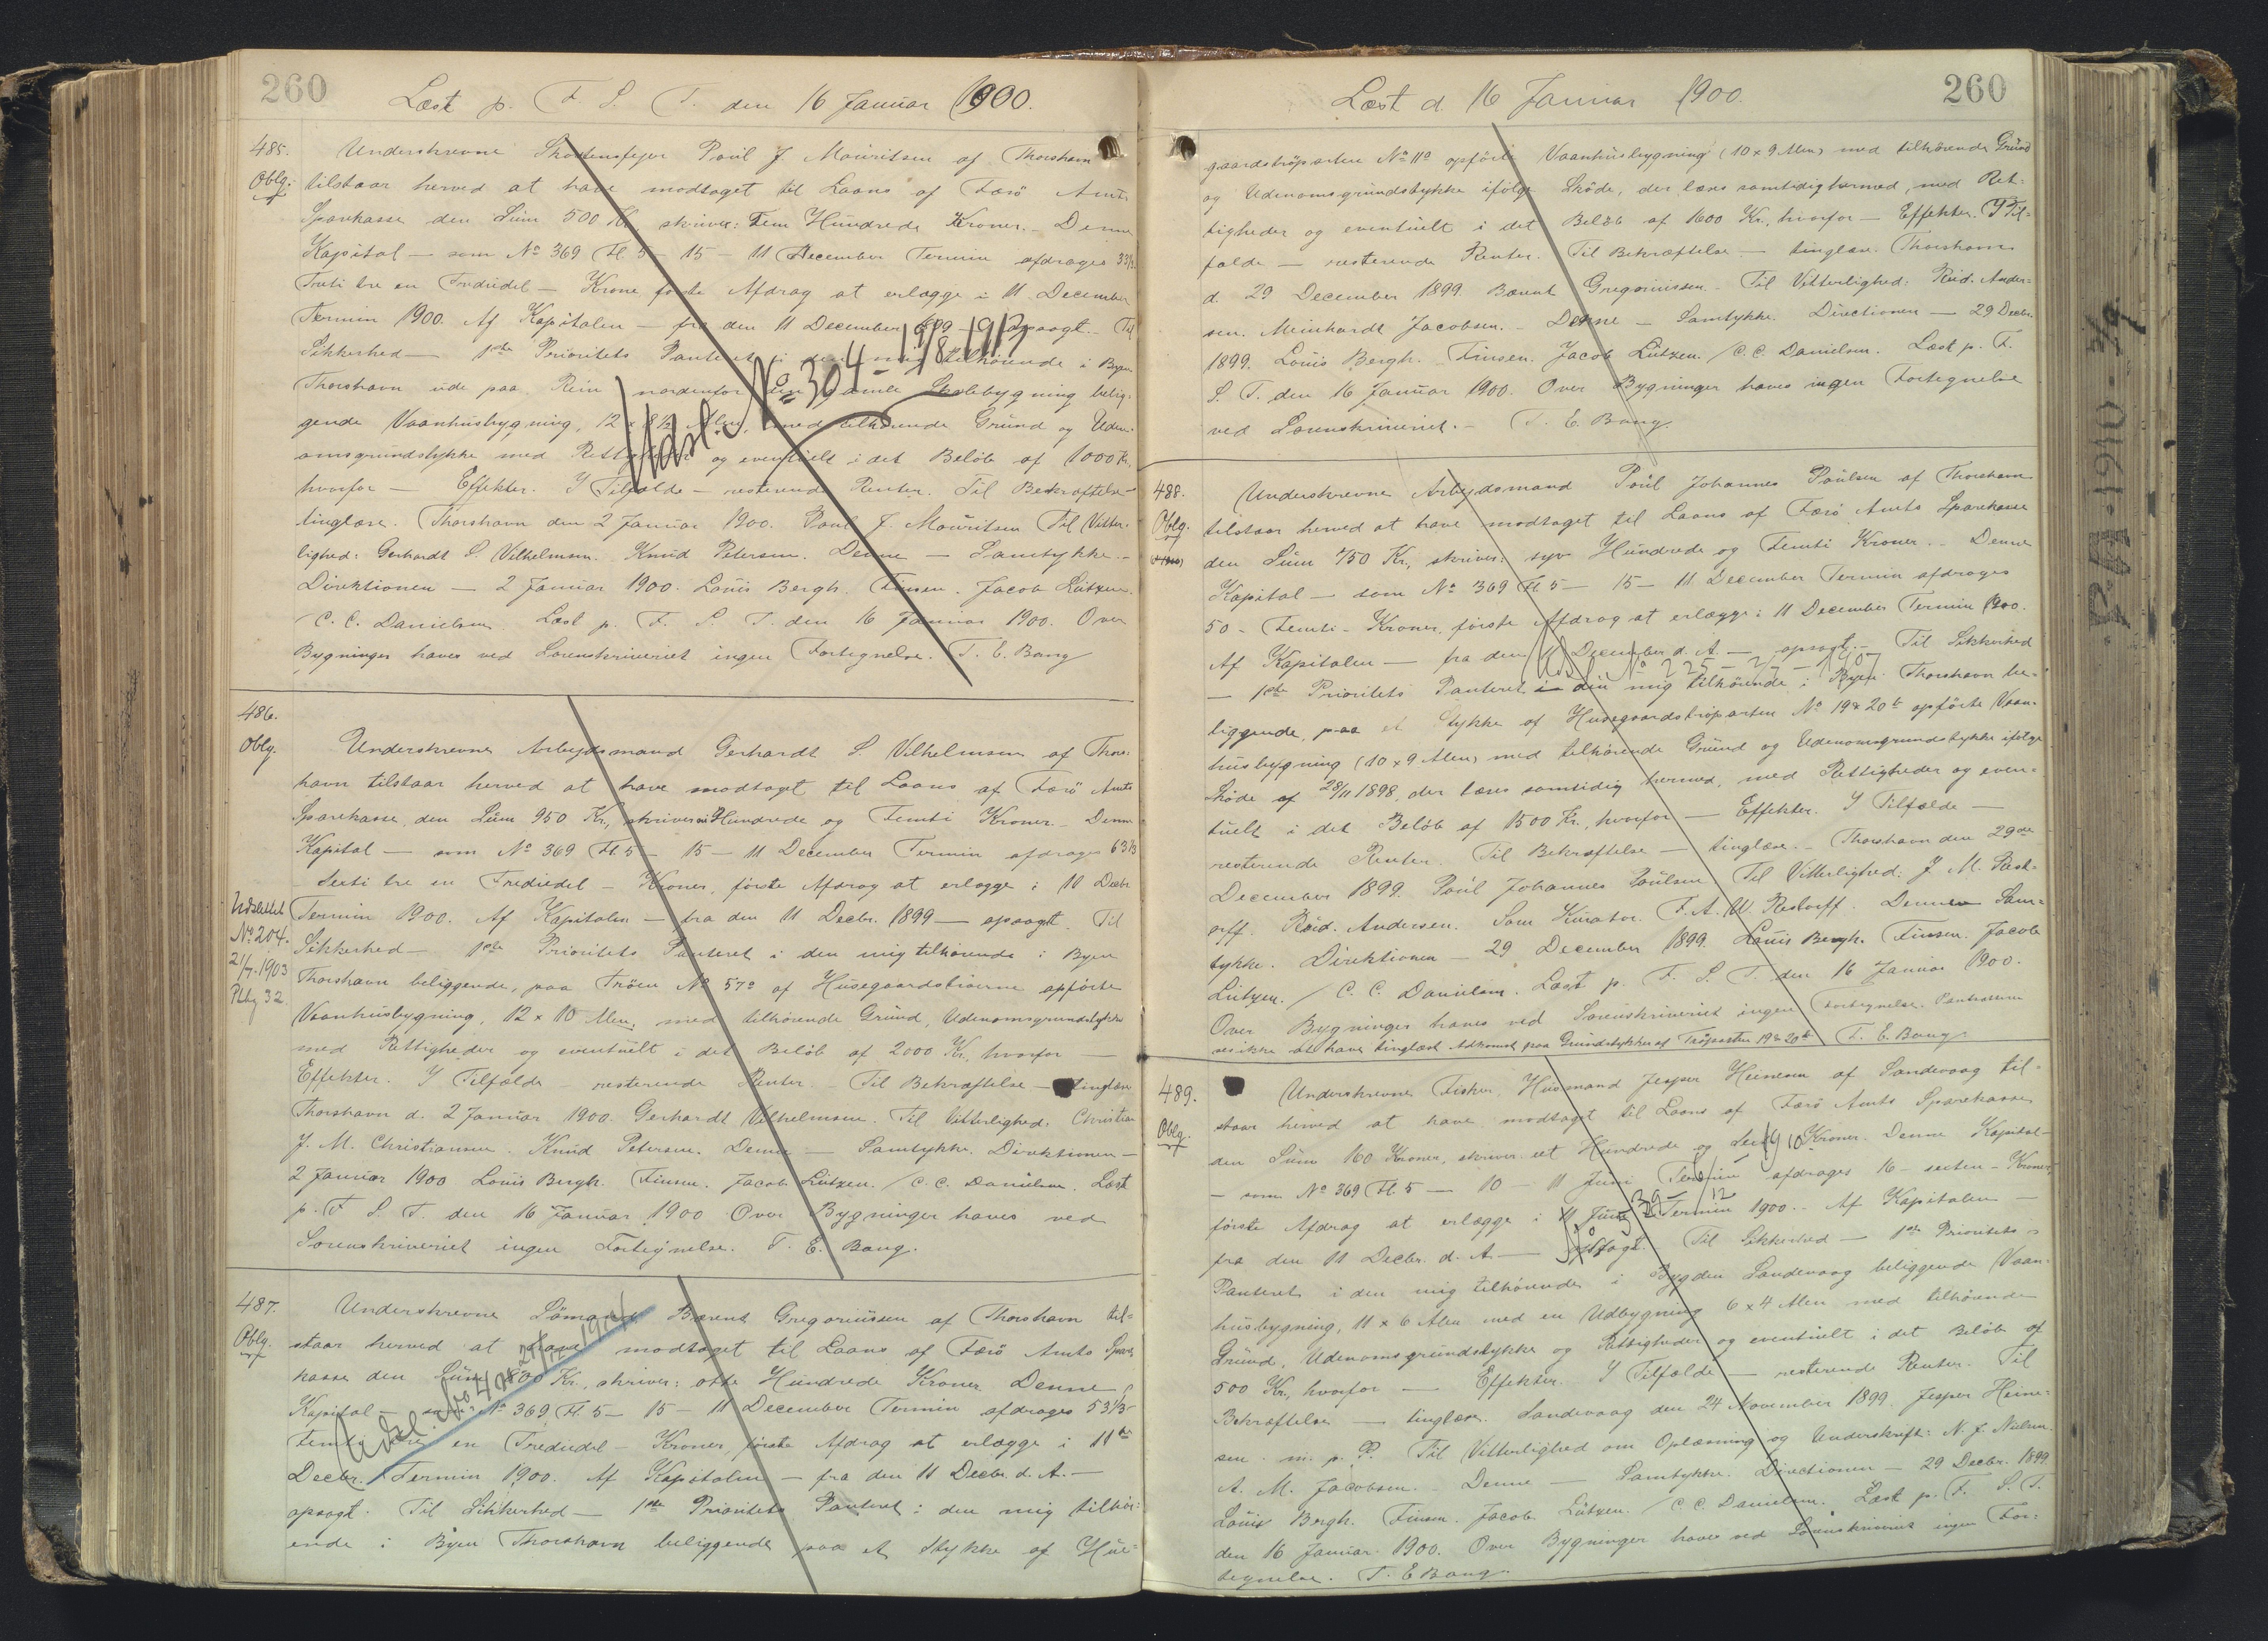 260
Læst p. F. S. T. den 16 Januar 1900.
485.
Oblg.
Underskrevne Skorstensfejer Poul J. Mouritsen af Thorshavn
tilstaar herved at have modtaget til Laans af Færö Amts
Sparekasse den Sum 500 Kr. skriver: Fem Hundrede Kroner. Denne
Kapital — som No 369 Fl. 5 — 15 — 11 December Termin afdrages 33 1/3
Treti tre en Trediedel — Krone første Afdrag at erlægge i 11 December
Termin 1900. Af Kapitalen — fra den 11 December 1899 — opsagt. Til
Sikkerhed — 1ste Prioritets Panteret i den mig tilhörende i Byen
Thorshavn ude paa Rein nordenfor den gamle Skolebygning belig-
gende Vaanhusbygning, 12 x 8 1/2 Alen, med tilhörende Grund og Uden-
omsgrundstykke med Rettigheder og eventuelt i det Beløb af 1000 Kr.
hvorfor — Effekter. I Tilfælde — resterende Renter. Til Bekræftelse —
tinglæse. Thorshavn den 2 Januar 1900. Poul J. Mouritsen Til Vitter-
lighed: Gerhardt S. Vilhelmsen. Knud Petersen. Denne — Samtykke. —
Direktionen — 2 Januar 1900. Louis Bergh. Finsen. Jacob Lützen.
/ C. C. Danielsen. Læst p. F. S. T. den 16 Januar 1900. Over
Bygninger haves ved Sorenskriveriet ingen Fortegnelse. T. E. Bang
Udsl. No 304 - 19/8 1913
486.
Oblg.
Underskrevne Arbejdsmand Gerhardt S. Vilhelmsen af Thors-
havn tilstaar herved at have modtaget til Laans af Færö Amts
Sparekasse, den Sum 950 Kr., skriver ni Hundrede og Femti Kroner. Denne
Kapital — som No 369 Fl. 5 — 15 — 11 December Termin afdrages 63 1/3
— Sexti tre en Trediedel — Kroner, første Afdrag at erlægge i 11 Decbr.
Termin 1900. Af Kapitalen — fra den 11 Decbr. 1899 — opsagt. Til
Sikkerhed — 1ste Prioritets Panteret i den mig tilhörende i Byen
Thorshavn beliggende, paa Tröen No 57a af Husegaardströerne opförte
Vaanhusbygning, 12 x 10 Alen, med tilhörende Grund, Udenomsgrundstykke
med Rettigheder og eventuelt i det Beløb af 2000 Kr., hvorfor —
Effekter. I Tilfælde — resterende Renter. — Til Bekræftelse — tinglæse
Thorshavn d. 2 Januar 1900. Gerhardt Vilhelmsen. Til Vitterlighed: Christian
J. M. Christiansen. Knud Petersen. Denne — Samtykke. Direktionen —
2 Januar 1900 Louis Bergh. Finsen. Jacob Lützen. / C. C. Danielsen. Læst
p. F. S. T. den 16 Januar 1900. Over Bygninger haves ved
Sorenskriveriet ingen Fortegnelse. T. E. Bang.
Udslettet
No 204.
21/7. 1903
Pkbg 32.
487.
Oblg.
Underskrevne Sömand Barent Gregoriussen af Thorshavn til-
staar herved at have modtaget til Laans af Færö Amts Spare-
kasse den Sum 800 Kr., skriver: otte Hundrede Kroner Denne
Kapital — som No 369 Fl. 5 — 15 — 11 December Termin afdrages 53 1/3
Femti tre en Trediedel — Kroner, første Afdrag at erlægge i 11te
Decbr. Termin 1900. Af Kapitalen — fra den 11 Decbr. d. A. —
opsagt. Til Sikkerhed — 1ste Prioritets Panteret i den mig tilhör-
ende i Byen Thorshavn beliggende paa et Stykke af Huse-
Udsl. No
260
Læst d. 16 Januar 1900.
gaardströparten No 11a opførte Vaanhusbygning (10 x 9 Alen) med tilhörende Grund
og Udenomsgrundstykke ifölge Sköde, der læses samtidig hermed, med Ret-
tigheder og eventuelt i det Beløb af 1600 Kr., hvorfor — Effekter. I Til-
fælde — resterende Renter. Til Bekræftelse — tinglæse. Thorshavn
d. 29 December 1899. Barent Gregoriussen. Til Vitterlighed: Rud. Ander-
sen. Meinhardt Jacobsen. — Denne — Samtykke. Directionen — 29 Decbr.
1899. Louis Bergh. Finsen. Jacob Lützen. / C. C. Danielsen. Læst p. F.
S. T. den 16 Januar 1900. Over Bygninger haves ingen Fortegnelse
ved Sorenskriveriet. — T. E. Bang.
488.
Oblg.
Underskrevne Arbejdsmand Poul Johannes Poulsen af Thorshavn
tilstaar herved at have modtaget til Laans af Færö Amts Sparekasse
den Sum 750 Kr., skriver: syv Hundrede og Femti Kroner. — Denne
Kapital — som No 369 Fl. 5 — 15 — 11 December Termin afdrages
50 — Femti — Kroner, første Afdrag at erlægge i 11 December Termin 1900.
Af Kapitalen — fra den 11 December d. A. — opsagt. — Til Sikkerhed
— 1ste Prioritets Panteret i den mig tilhörende i Byen Thorshavn be-
liggende, paa et Stykke af Husegaardströparten No 19 & 20b opförte Vaan-
husbygning (10 x 9 Alen) med tilhörende Grund og Udenomsgrundstykke ifölge
Sköde af 28/11 1898, der læses samtidig hermed, med Rettigheder og even-
tuelt i det Beløb af 1500 Kr., hvorfor — Effekter. I Tilfælde —
resterende Renter. Til Bekræftelse — tinglæse. — Thorshavn den 29de
December 1899. Poul Johannes Poulsen Til Vitterlighed: J. M. Rest-
orff. Rud. Andersen. Som Kurator. F. A. W. Restorff. Denne — Sam-
tykke. Direktionen — 29 December 1899. Louis Bergh. Finsen. Jacob
Lützen. / C. C. Danielsen. Læst p. F. S. T. den 16 Januar 1900.
Over Bygninger haves ved Sorenskriveriet ingen Fortegnelse. Pantsætteren
ses ikke at have tinglæst Adkomst paa Grundstykket af Tröparten 19 & 20b T. E. Bang.
Udsl. No 225
489.
Oblg.
Underskrevne Fisker, Husmand Jesper Heinesen af Sandevaag til-
staar herved at have modtaget til Laans af Færö Amts Sparekasse
den Sum 160 Kroner, skriver eet Hundrede og Sexti Kroner. Denne Kapital —
— som No 369 Fl. 5 — 10 — 11 Juni Termin afdrages 16 — sexten — Kroner,
første Afdrag at erlægge i 11 Juni Termin 1900. Af Kapitalen —
fra den 11 Decbr. d. A. — opsagt. Til Sikkerhed — 1ste Prioritets
Panteret i den mig tilhörende i Bygden Sandevaag beliggende Vaan-
husbygning, 11 x 6 Alen med en Udbygning 6 x 4 Alen med tilhörende
Grund, Udenomsgrundstykke og Rettigheder og eventuelt i det Beløb af
500 Kr., hvorfor — Effekter. I Tilfælde — resterende Renter. Til
Bekræftelse — tinglæse. Sandevaag den 24 November 1899. Jesper Heine-
sen m. p. P. Til Vitterlighed om Oplæsning og Underskrift: N. J. Nielsen.
A. M. Jacobsen. Denne — Samtykke. Directionen — 29 Decbr. 1899.
Louis Bergh. Finsen. Jacob Lützen. / C. C. Danielsen. Læst p. F. S. T.
den 16 Januar 1900. Over Bygninger haves ved Sorenskriveriet ingen For-
tegnelse. T. E. Bang.